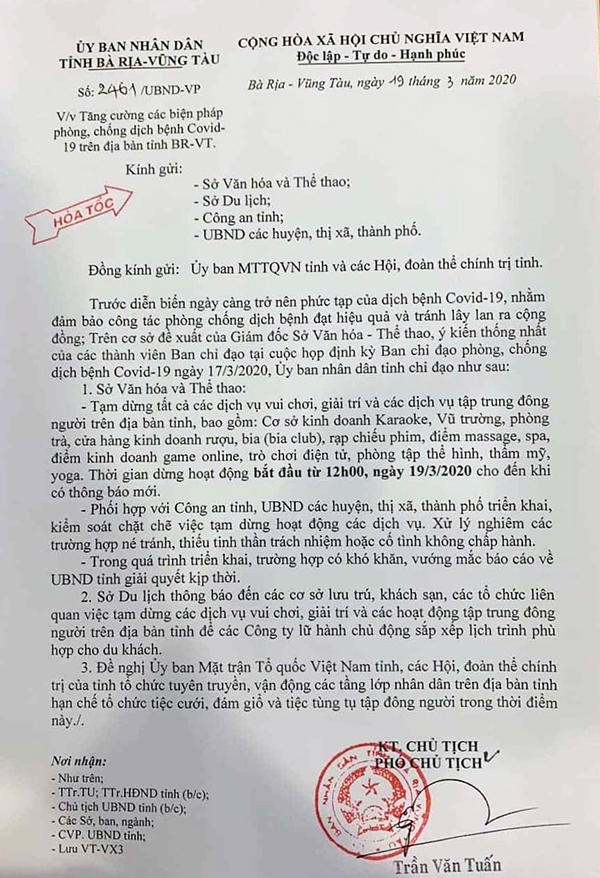 ỦY BAN NHÂN DÂN
TỈNH BÀ RỊA-VŨNG TÀU
CỘNG HÒA XÃ HỘI CHỦ NGHĨA VIỆT NAM
Độc lập - Tự do - Hạnh phúc
Số: 2461/UBND-VP
Bà Rịa - Vũng Tàu, ngày 19 tháng 3 năm 2020
V/v Tăng cường các biện pháp
phòng, chống dịch bệnh Covid-
19 trên địa bàn tỉnh BR-VT.
Kính gửi:
HỎA TỐC
- Sở Văn hóa và Thể thao;
- Sở Du lịch;
- Công an tỉnh;
- UBND các huyện, thị xã, thành phố.
Đồng kính gửi: Ủy ban MTTQVN tỉnh và các Hội, đoàn thể chính trị tỉnh.
Trước diễn biến ngày càng trở nên phức tạp của dịch bệnh Covid-19, nhằm
đảm bảo công tác phòng chống dịch bệnh đạt hiệu quả và tránh lây lan ra cộng
đồng; Trên cơ sở đề xuất của Giám đốc Sở Văn hóa - Thể thao, ý kiến thống nhất
của các thành viên Ban chỉ đạo tại cuộc họp định kỳ Ban chỉ đạo phòng, chống
dịch bệnh Covid-19 ngày 17/3/2020, Ủy ban nhân dân tỉnh chỉ đạo như sau:
1. Sở Văn hóa và Thể thao:
- Tạm dừng tất cả các dịch vụ vui chơi, giải trí và các dịch vụ tập trung đông
người trên địa bàn tỉnh, bao gồm: Cơ sở kinh doanh Karaoke, Vũ trường, phòng
trà, cửa hàng kinh doanh rượu, bia (bia club), rạp chiếu phim, điểm massage, spa,
điểm kinh doanh game online, trò chơi điện tử, phòng tập thể hình, thẩm mỹ,
yoga. Thời gian dừng hoạt động bắt đầu từ 12h00, ngày 19/3/2020 cho đến khi
có thông báo mới.
- Phối hợp với Công an tỉnh, UBND các huyện, thị xã, thành phố triển khai,
kiểm soát chặt chẽ việc tạm dừng hoạt động các dịch vụ. Xử lý nghiêm các
trường hợp né tránh, thiếu tinh thần trách nhiệm hoặc cố tình không chấp hành.
- Trong quá trình triển khai, trường hợp có khó khăn, vướng mắc báo cáo về
UBND tỉnh giải quyết kịp thời.
2. Sở Du lịch thông báo đến các cơ sở lưu trú, khách sạn, các tổ chức liên
quan việc tạm dừng các dịch vụ vui chơi, giải trí và các hoạt động tập trung đông
người trên địa bàn tỉnh để các Công ty lữ hành chủ động sắp xếp lịch trình phù
hợp cho du khách.
3. Đề nghị Ủy ban Mặt trận Tổ quốc Việt Nam tỉnh, các Hội, đoàn thể chính
trị của tỉnh tổ chức tuyên truyền, vận động các tầng lớp nhân dân trên địa bàn tỉnh
hạn chế tổ chức tiệc cưới, đám giỗ và tiệc tùng tụ tập đông người trong thời điểm
này./.
Nơi nhận:
- Như trên;
- TTr.TU; TTr.HĐND tỉnh (b/c);
- Chủ tịch UBND tỉnh (b/c);
- Các Sở, ban, ngành;
- CVP. UBND tỉnh;
- Lưu VT-VX3
KT. CHỦ TỊCH
PHÓ CHỦ TỊCH
Trần Văn Tuấn